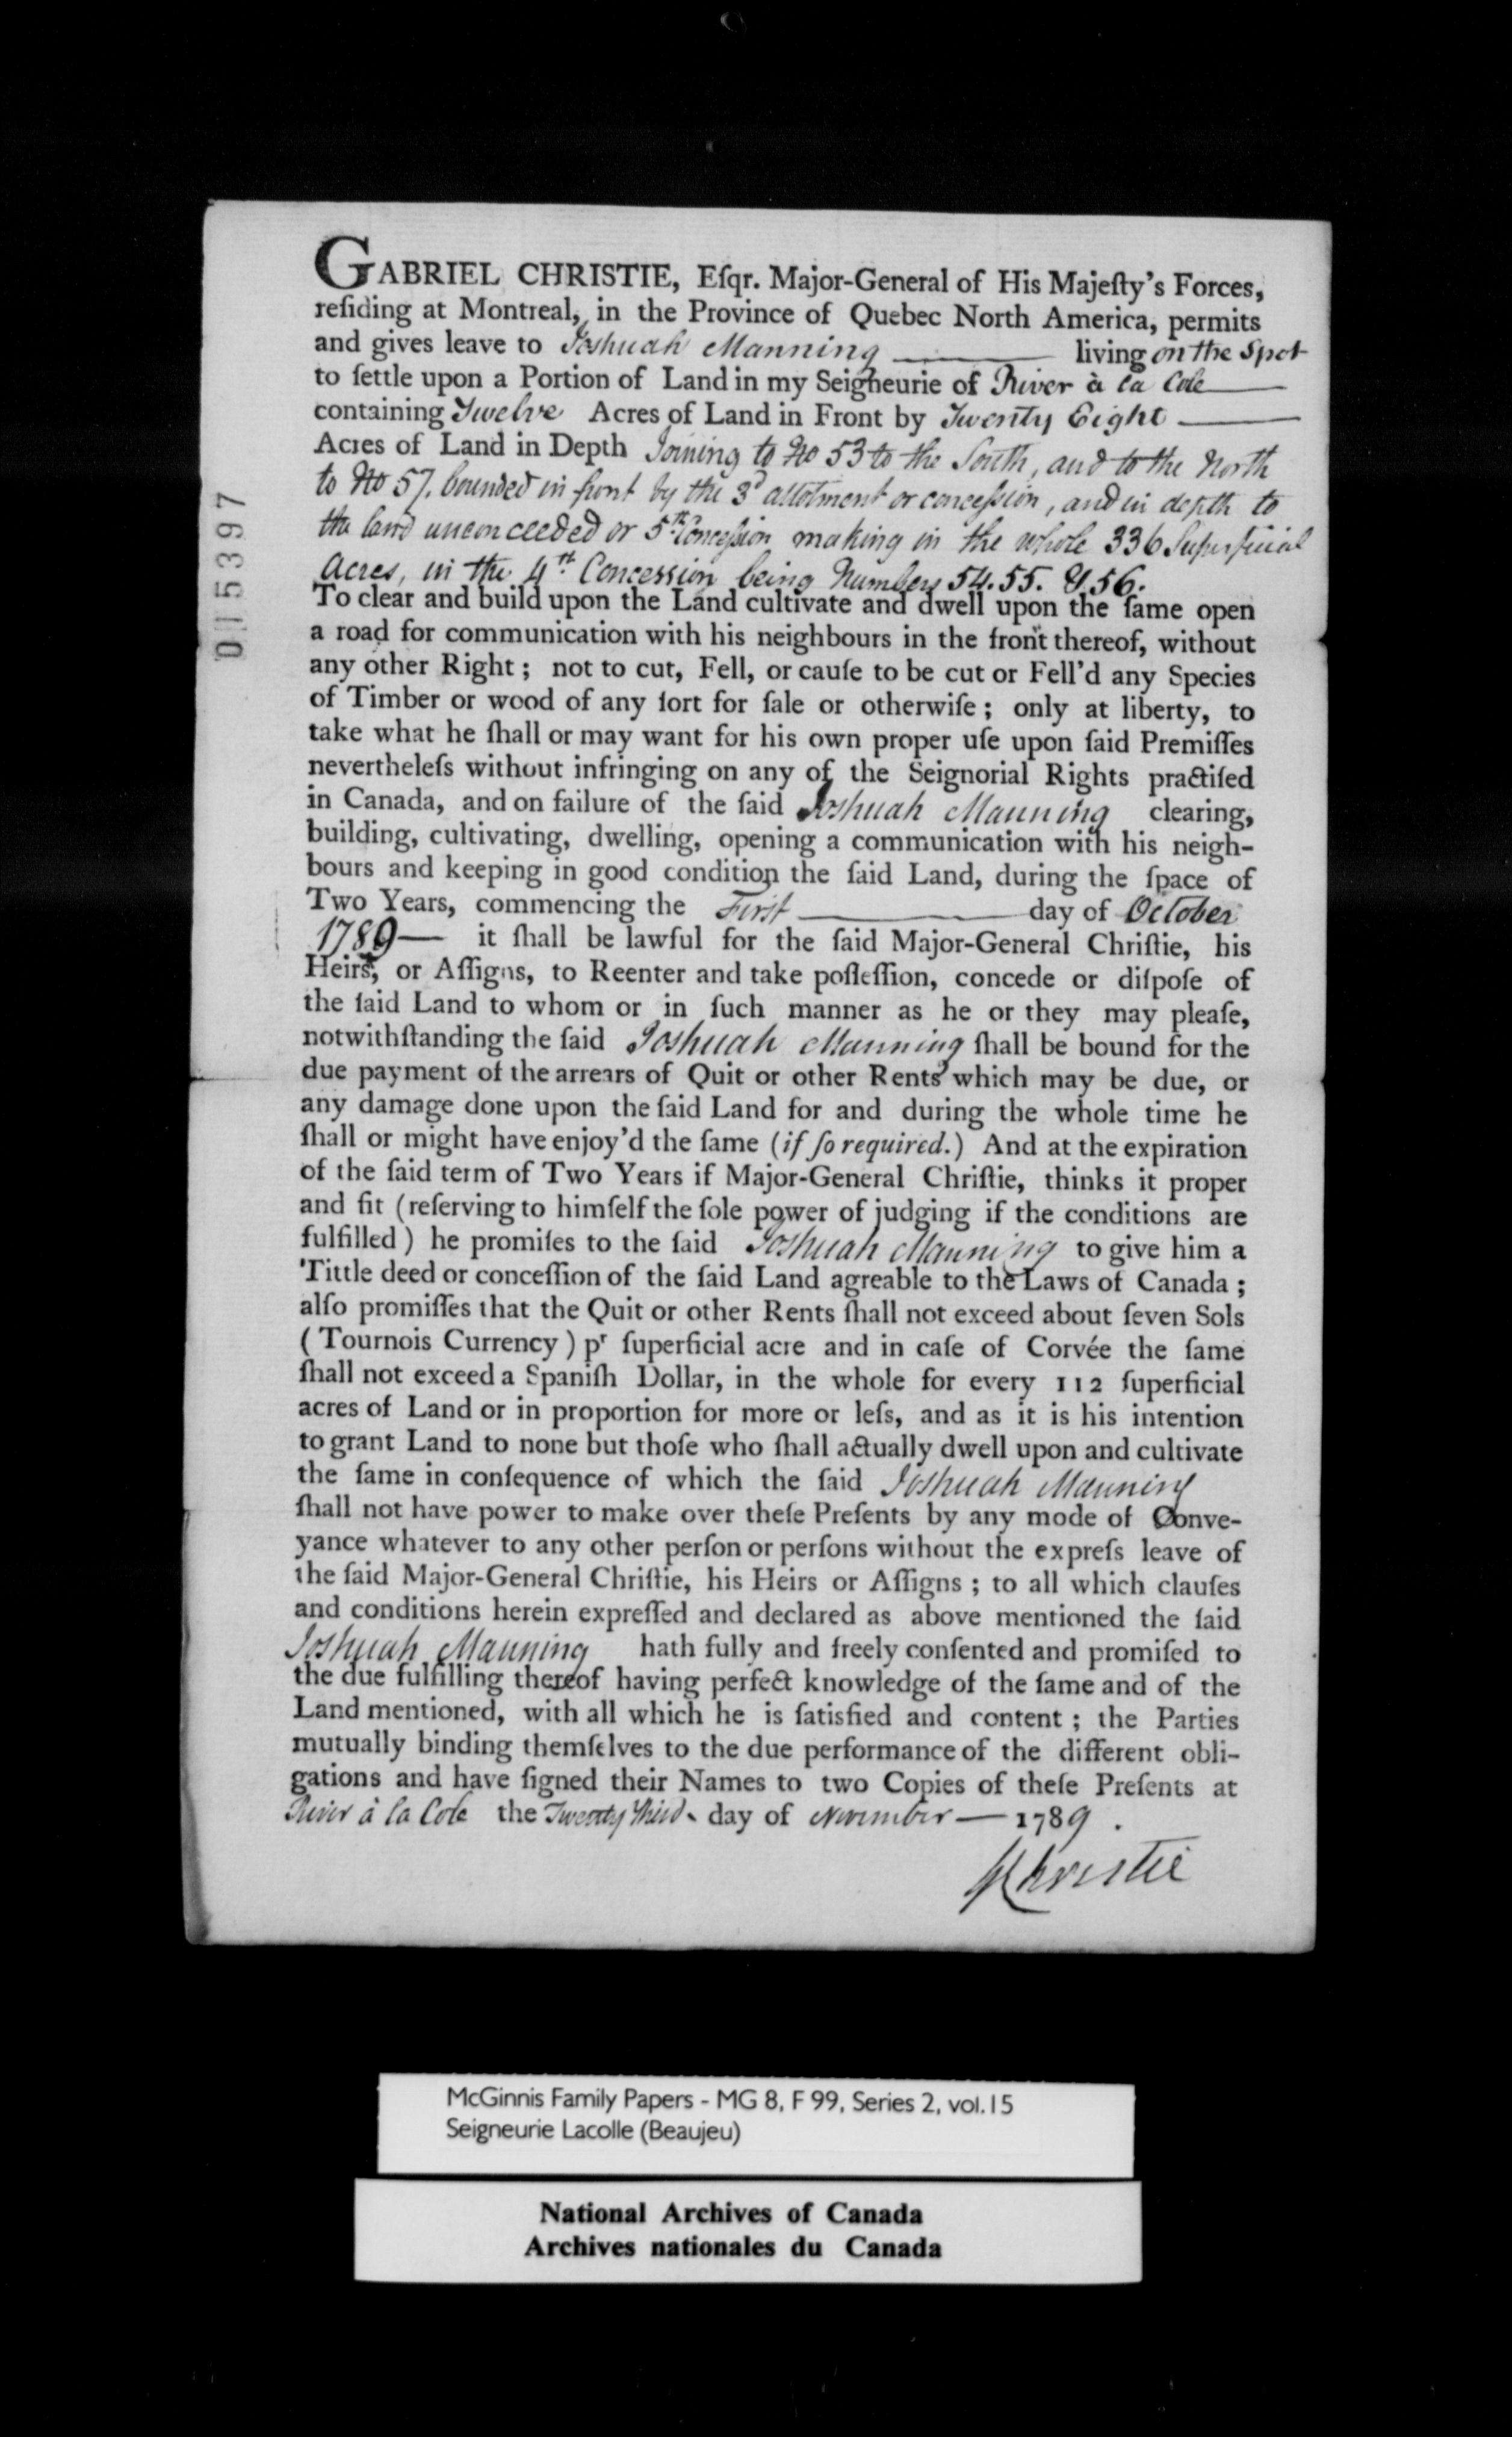 GABRIEL CHRISTIE, Eſqr. Major-General of His Majeſty's Forces,
reſiding at Montreal, in the Province of Quebec North America, permits
and gives leave to Joshuah Manning living on the Spot
to ſettle upon a Portion of Land in my Seigneurie of River à la Cole
containing Twelve Acres of Land in Front by Twenty Eight
Acres of Land in Depth Joining to No 53 to the South, and to the North
to No 57. bounded in front by the 3d allotment or conceſsion, and in depth to
the land unconceeded or 5th Conceſsion making in the whole 336 Superficial
Acres, in the 4th Concession being Numbers 54. 55. & 56.
To clear and build upon the Land cultivate and dwell upon the ſame open
a road for communication with his neighbours in the front thereof, without
any other Right ; not to cut, Fell, or cauſe to be cut or Fell'd any Species
of Timber or wood of any ſort for ſale or otherwiſe ; only at liberty, to
take what he ſhall or may want for his own proper uſe upon ſaid Premiſſes
nevertheleſs without infringing on any of the Seignorial Rights practiſed
in Canada, and on failure of the ſaid Joshuah Manning clearing,
building, cultivating, dwelling, opening a communication with his neigh-
bours and keeping in good condition the ſaid Land, during the ſpace of
Two Years, commencing the First day of October
1789— it ſhall be lawful for the ſaid Major-General Chriſtie, his
Heirs, or Aſſigns, to Reenter and take poſſeſſion, concede or diſpoſe of
the ſaid Land to whom or in ſuch manner as he or they may pleaſe,
notwithſtanding the ſaid Joshuah Manning ſhall be bound for the
due payment of the arrears of Quit or other Rents which may be due, or
any damage done upon the ſaid Land for and during the whole time he
ſhall or might have enjoy'd the ſame (if ſo required.) And at the expiration
of the ſaid term of Two Years if Major-General Chriſtie, thinks it proper
and fit (reſerving to himſelf the ſole power of judging if the conditions are
fulfilled) he promiſes to the ſaid Joshuah Manning to give him a
Tittle deed or conceſſion of the ſaid Land agreable to the Laws of Canada ;
alſo promiſſes that the Quit or other Rents ſhall not exceed about ſeven Sols
( Tournois Currency ) pr ſuperficial acre and in caſe of Corvée the ſame
ſhall not exceed a Spaniſh Dollar, in the whole for every 112 ſuperficial
acres of Land or in proportion for more or leſs, and as it is his intention
to grant Land to none but thoſe who ſhall actually dwell upon and cultivate
the ſame in conſequence of which the ſaid Joshuah Manning
ſhall not have power to make over theſe Preſents by any mode of Conve-
yance whatever to any other perſon or perſons without the expreſs leave of
the ſaid Major-General Chriſtie, his Heirs or Aſſigns ; to all which clauſes
and conditions herein expreſſed and declared as above mentioned the ſaid
Joshuah Manning hath fully and freely conſented and promiſed to
the due fulfilling thereof having perfect knowledge of the ſame and of the
Land mentioned, with all which he is ſatisfied and content ; the Parties
mutually binding themſelves to the due performance of the different obli-
gations and have ſigned their Names to two Copies of theſe Preſents at
River à la Cole the Twenty third day of November — 1789 .
GChristie
015397
McGinnis Family Papers - MG 8, F 99, Series 2, vol.15
Seigneurie Lacolle (Beaujeu)
National Archives of Canada
Archives nationales du Canada